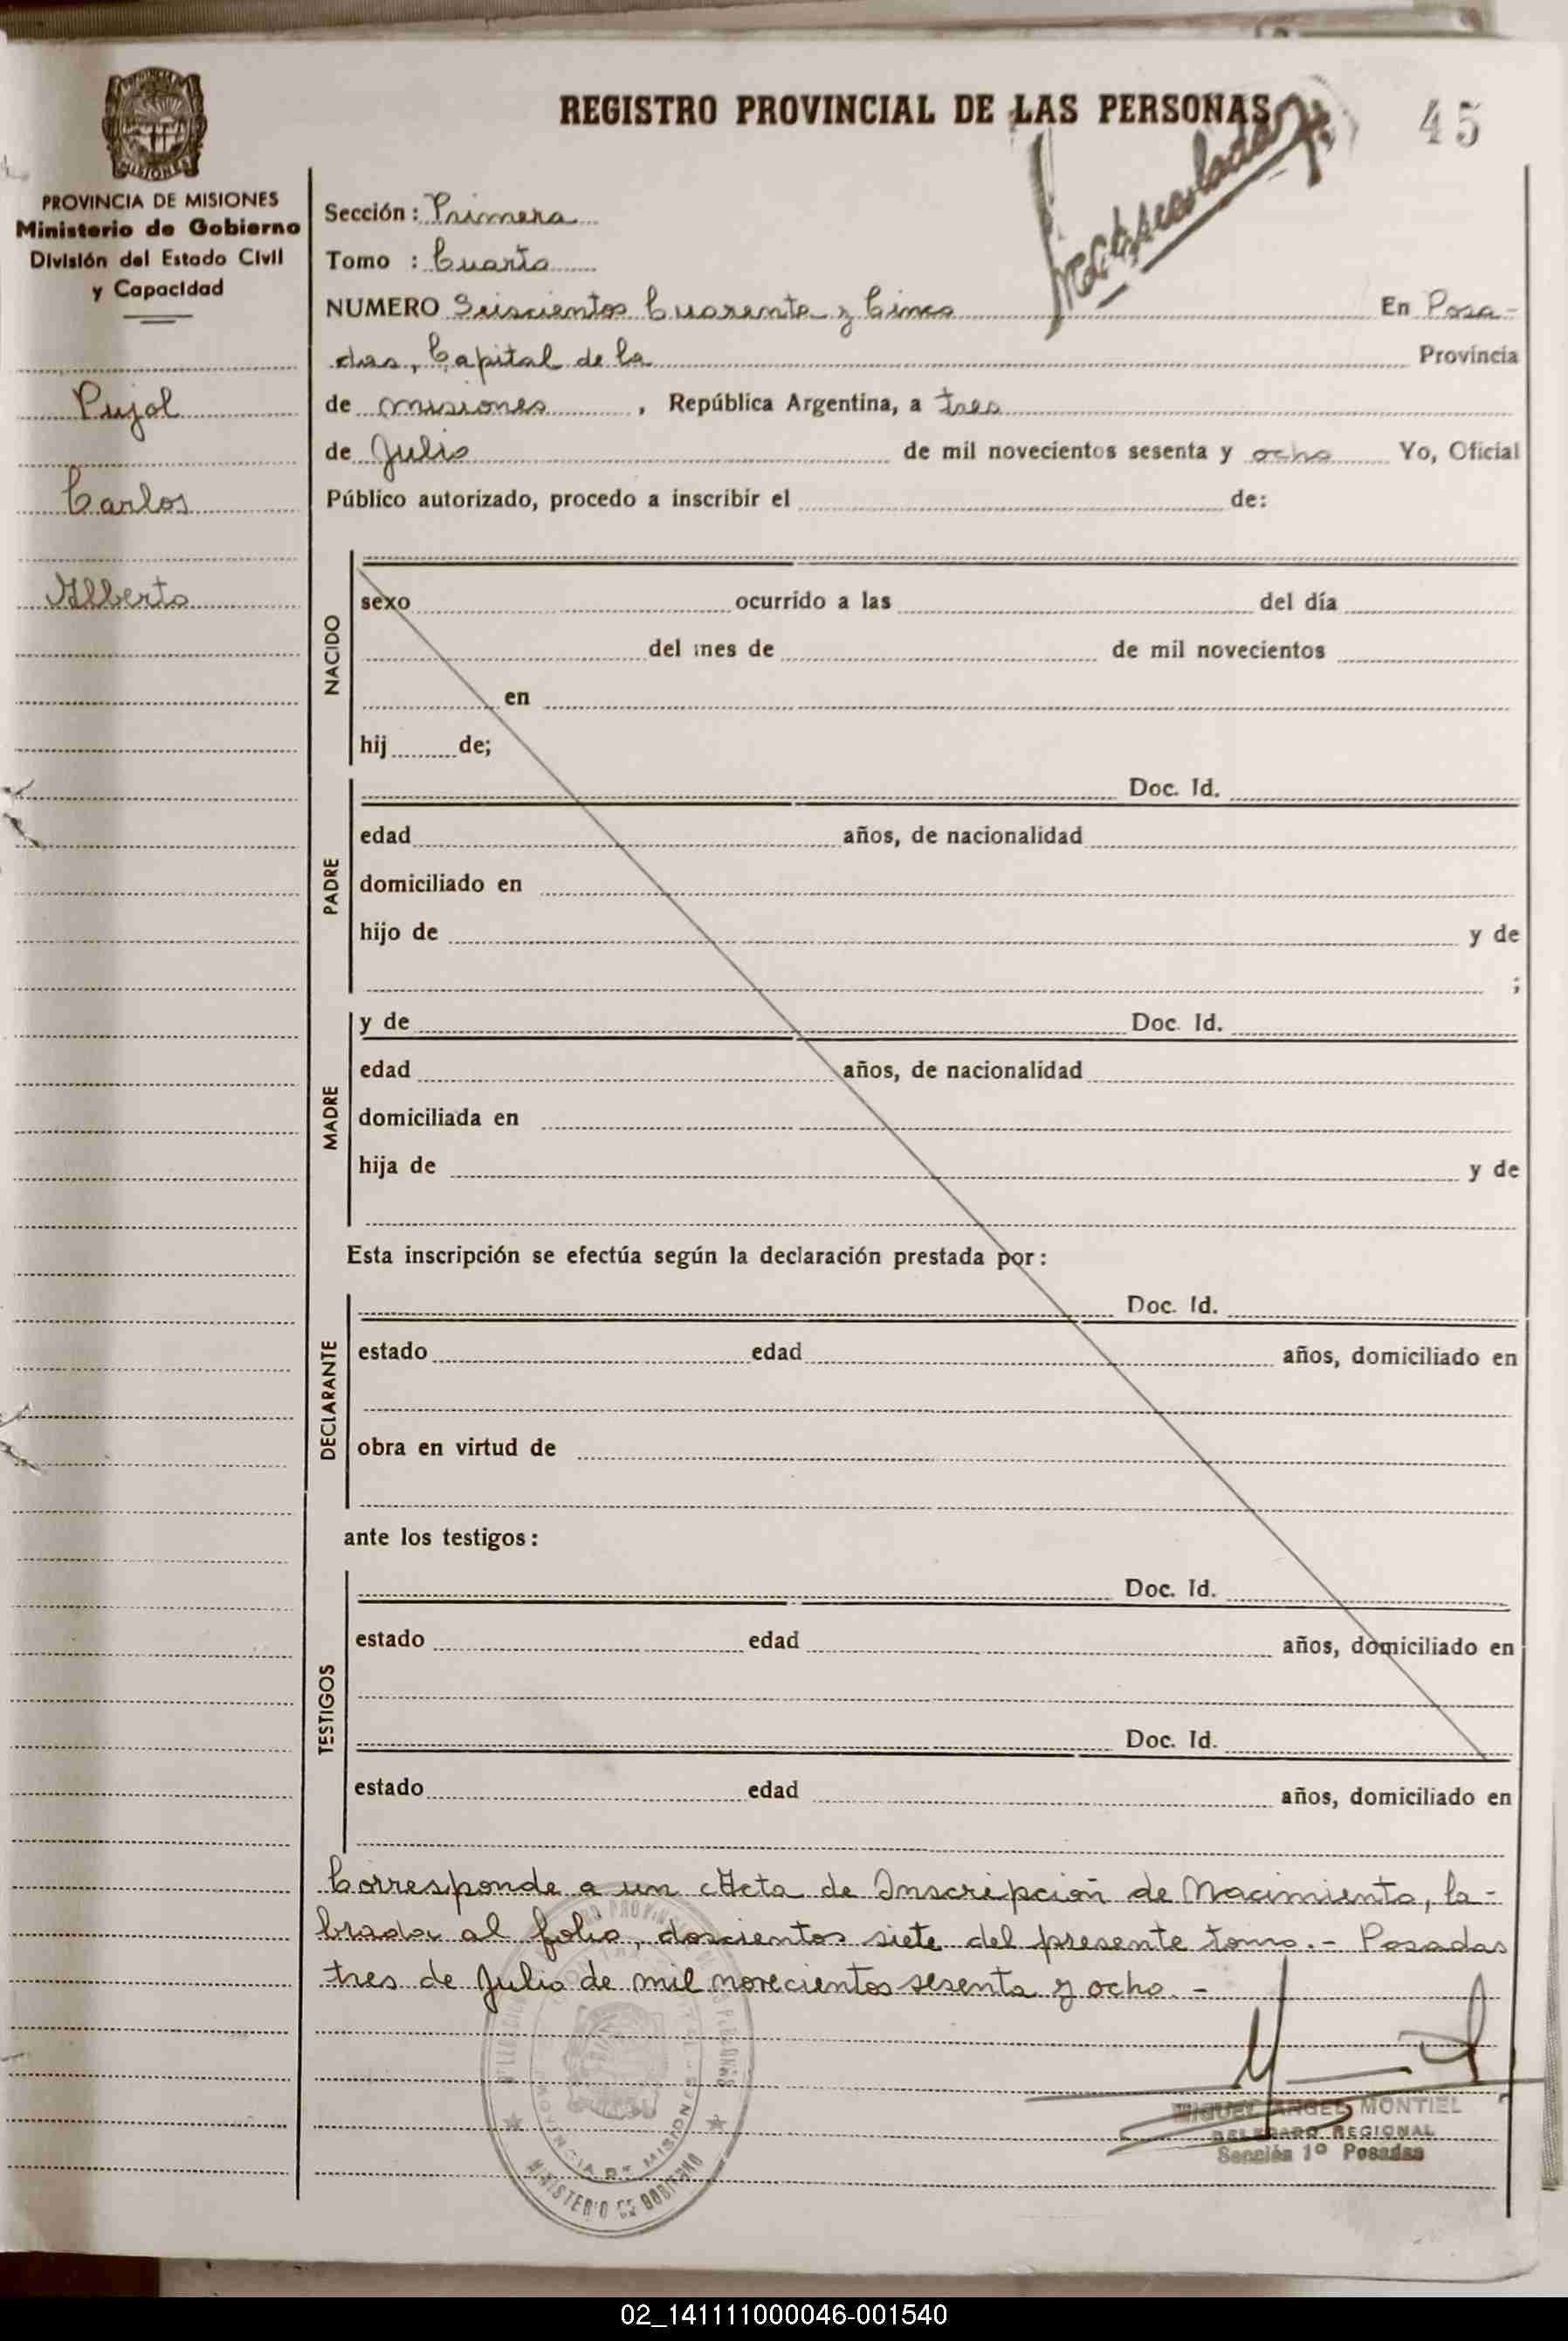 REGISTRO PROVINCIAL DE LAS PERSONAS
45
MISIONES
PROVINCIA DE MISIONES
Ministerio de Gobierno
División del Estado Civil
y Capacidad
Pujol
Carlos
Alberto
Sección: Primera
Tomo : Cuarto
NUMERO Seiscientos Cuarenta y Cinco En Posa-
das, Capital de la Provincia
de Misiones, República Argentina, a tres
de Julio de mil novecientos sesenta y ocho Yo, Oficial
Público autorizado, procedo a inscribir el de:
NACIDO
sexo ocurrido a las del día
del mes de de mil novecientos
en
hij de;
PADRE
Doc. Id.
edad años, de nacionalidad
domiciliado en
hijo de y de
;
MADRE
y de Doc. Id.
edad años, de nacionalidad
domiciliada en
hija de y de
Esta inscripción se efectúa según la declaración prestada por:
DECLARANTE
Doc. Id.
estado edad años, domiciliado en
obra en virtud de
ante los testigos:
TESTIGOS
Doc. Id.
estado edad años, domiciliado en
Doc. Id.
estado edad años, domiciliado en
Corresponde a un Acta de Inscripción de Nacimiento, la-
brada al folio, doscientos siete del presente tomo.- Posadas
tres de Julio de mil novecientos sesenta y ocho.-
PROVINCIA DE MISIONES
MINISTERIO DE GOBIERNO
MIGUEL ANGEL MONTIEL
DELEGADO REGIONAL
Sección 1º Posadas
02_141111000046-001540